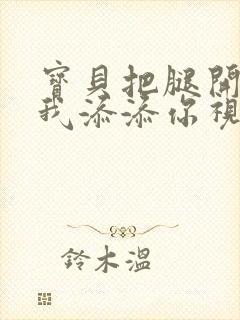 寶貝把腿開
我添添你視
鈴木溫